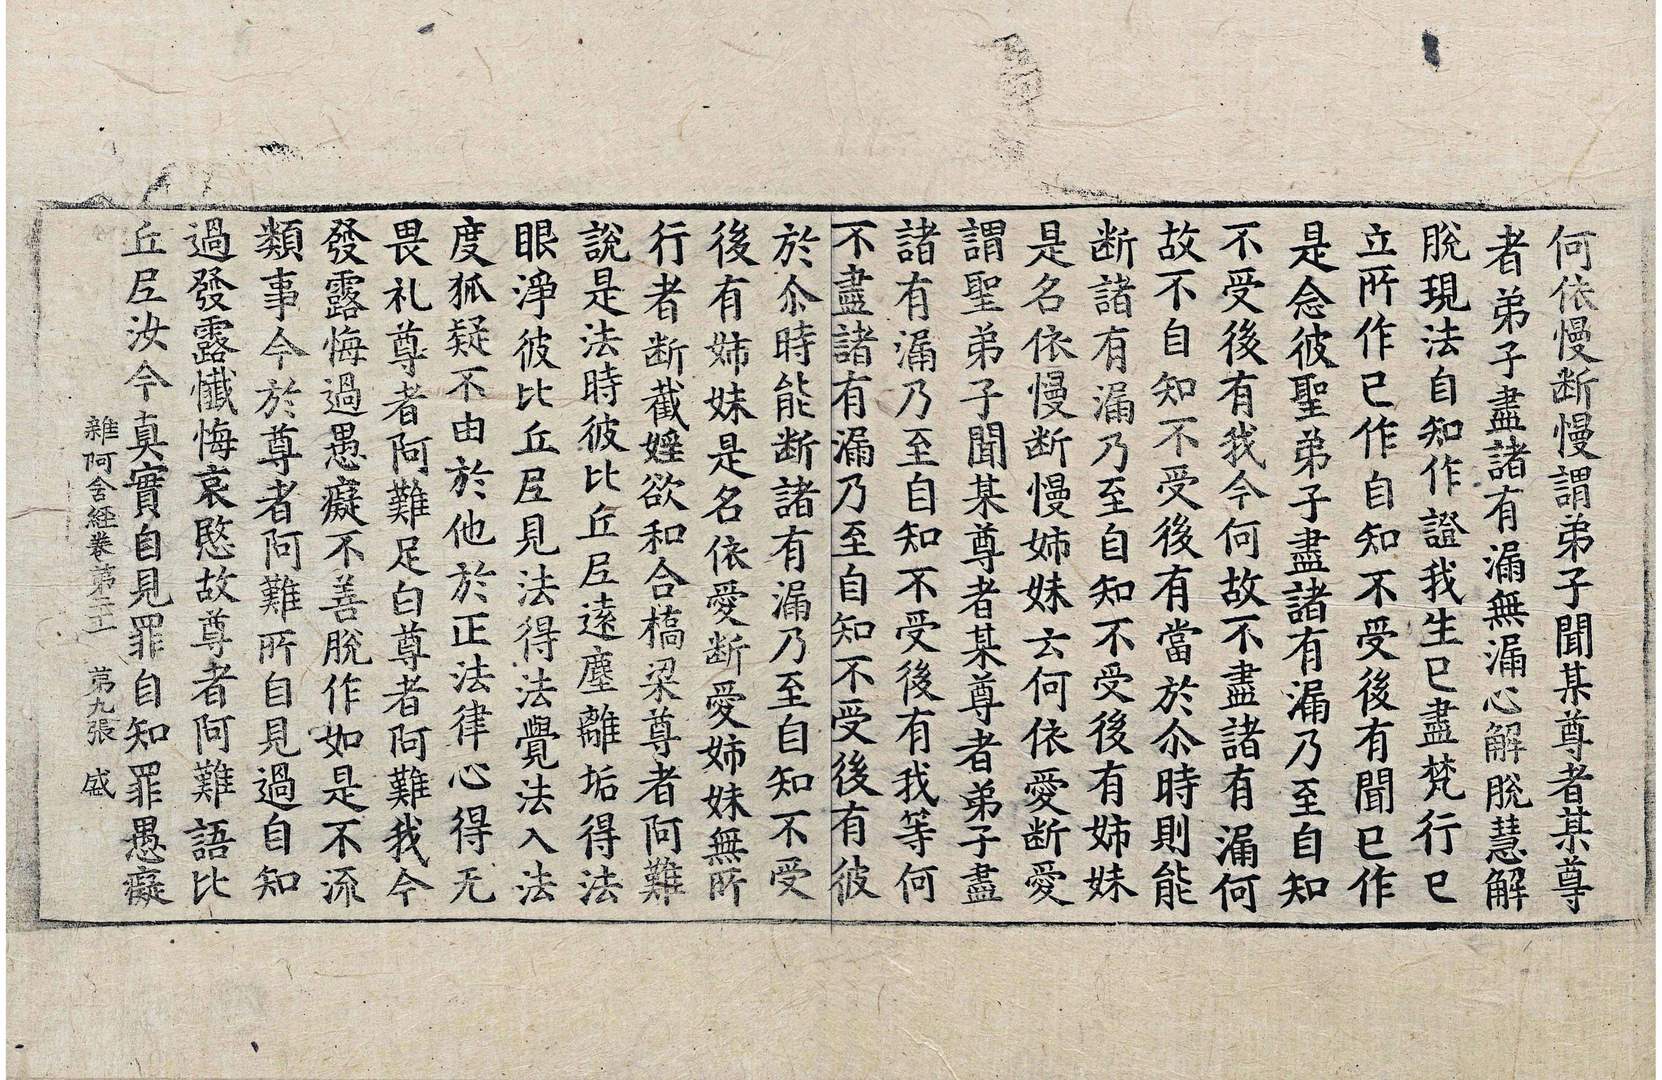 何依慢断慢謂弟子聞某尊者某尊
者弟子盡諸有漏無漏心解脫慧解
脫現法自知作證我生已盡梵行已
立所作已作自知不受後有聞已作
是念彼聖弟子盡諸有漏乃至自知
不受後有我今何故不盡諸有漏何
故不自知不受後有當於尒時則能
断諸有漏乃至自知不受後有姉妹
是名依慢断慢姉妹云何依愛断愛
謂聖弟子聞某尊者某尊者弟子盡
諸有漏乃至自知不受後有我等何
不盡諸有漏乃至自知不受後有彼
於尒時能断諸有漏乃至自知不受
後有姉妹是名依愛断愛姉妹無所
行者断截婬欲和合橋梁尊者阿難
說是法時彼比丘尼遠塵離垢得法
眼淨彼比丘尼見法得法覺法入法
度狐疑不由於他於正法律心得无
畏礼尊者阿難足白尊者阿難我今
發露悔過愚癡不善脫作如是不流
類事今於尊者阿難所自見過自知
過發露懺悔哀愍故尊者阿難語比
丘尼汝今真實自見罪自知罪愚癡
雜阿含経巻第二十一 第九張 盛